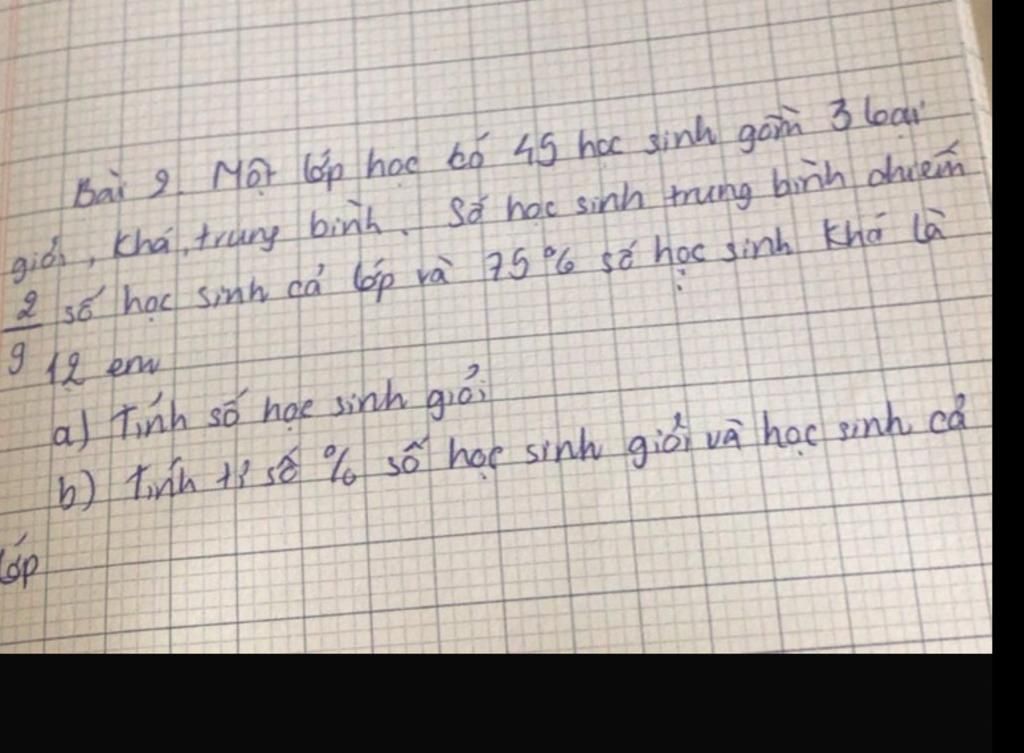 Bài 2. Một lớp học có 45 học sinh gồm 3 loại
giỏi, khá, trung bình. Số học sinh trung bình chiếm
2/9 số học sinh cả lớp và 75% số học sinh khá là
12 em
a) Tính số học sinh giỏi
b) Tính tỉ số % số học sinh giỏi và học sinh cả
lớp